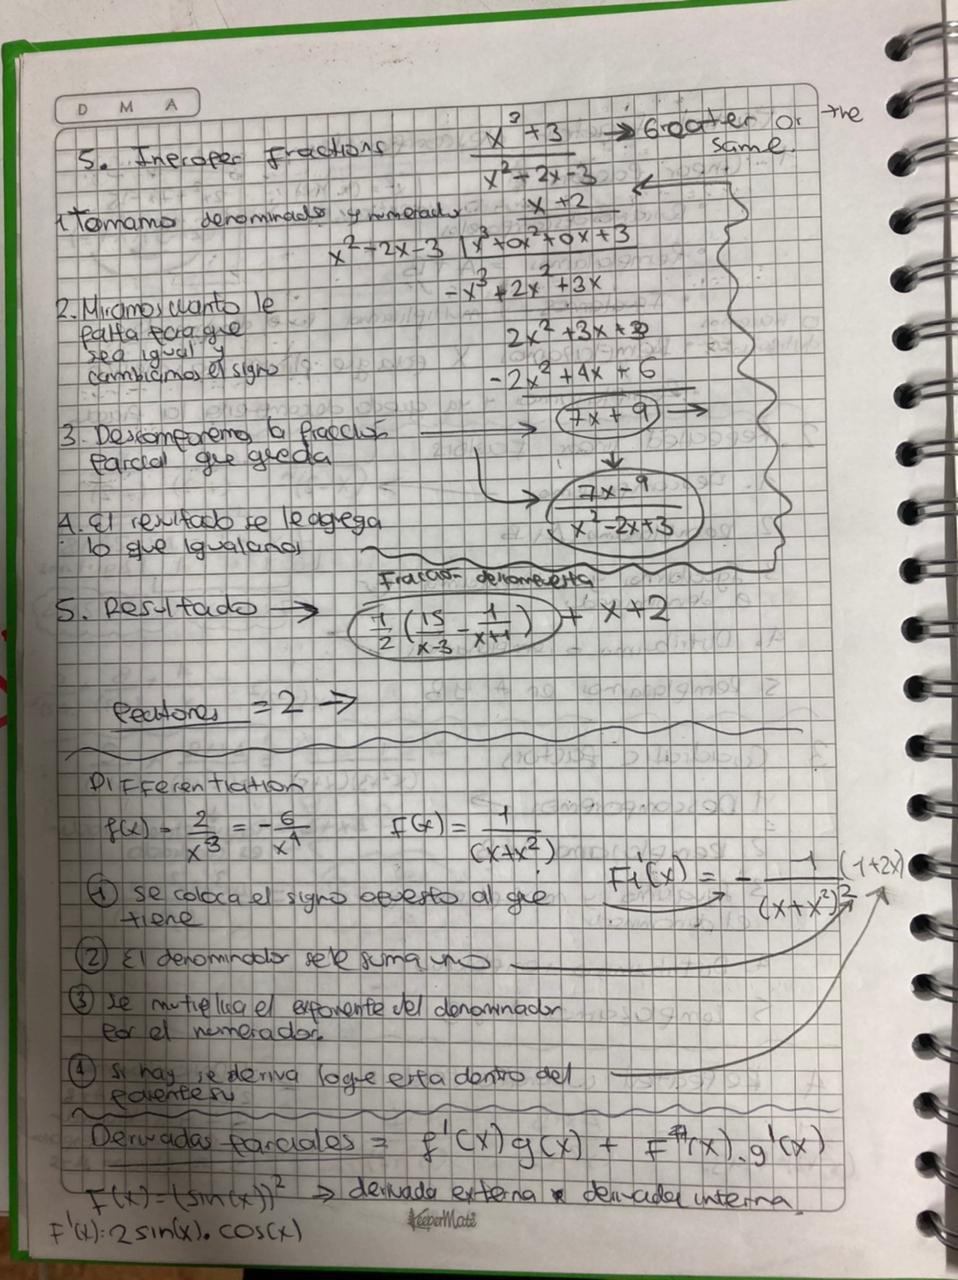 D M A
5. Improper Fractions x³+3 / x²-2x-3 → Greater or the
same.
x+2
1. Tomamo denominado y numerado
x²-2x-3 | x³+0x²+0x+3
-x³+2x²+3x
2. Miramos cuanto le
falta para que
sea igual y
cambiamos el signo
2x²+3x+3
-2x²+4x+6
3. Descomponemo la fraccion → 7x+9 →
parcial que queda
7x-9 / x²-2x+3
4. El resultado se le agega
lo que igualamos
Fraccion descompuesta
5. Resultado → 1/2 (15/x-3 - 1/x+1) + x+2
= 2 →
Differentiation
f(x) = 2/x³ = -6/x⁴ F(x) = 1/(x+x²)
F1'(x) = - 1/(x+x²)² (1+2x)
① se coloca el signo opuesto al que
tiene
② El denominador se le suma uno
③ se mutiplica el exponente del denominador
por el numerador.
④ Si hay se deriva loque esta dentro del
parentesis
Derivadas parciales = f'(x)g(x) + F(x).g'(x)
F(x)=(sin(x))² → derivada externa x derivada interna
KeeperMate
F'(x): 2sin(x). cos(x)